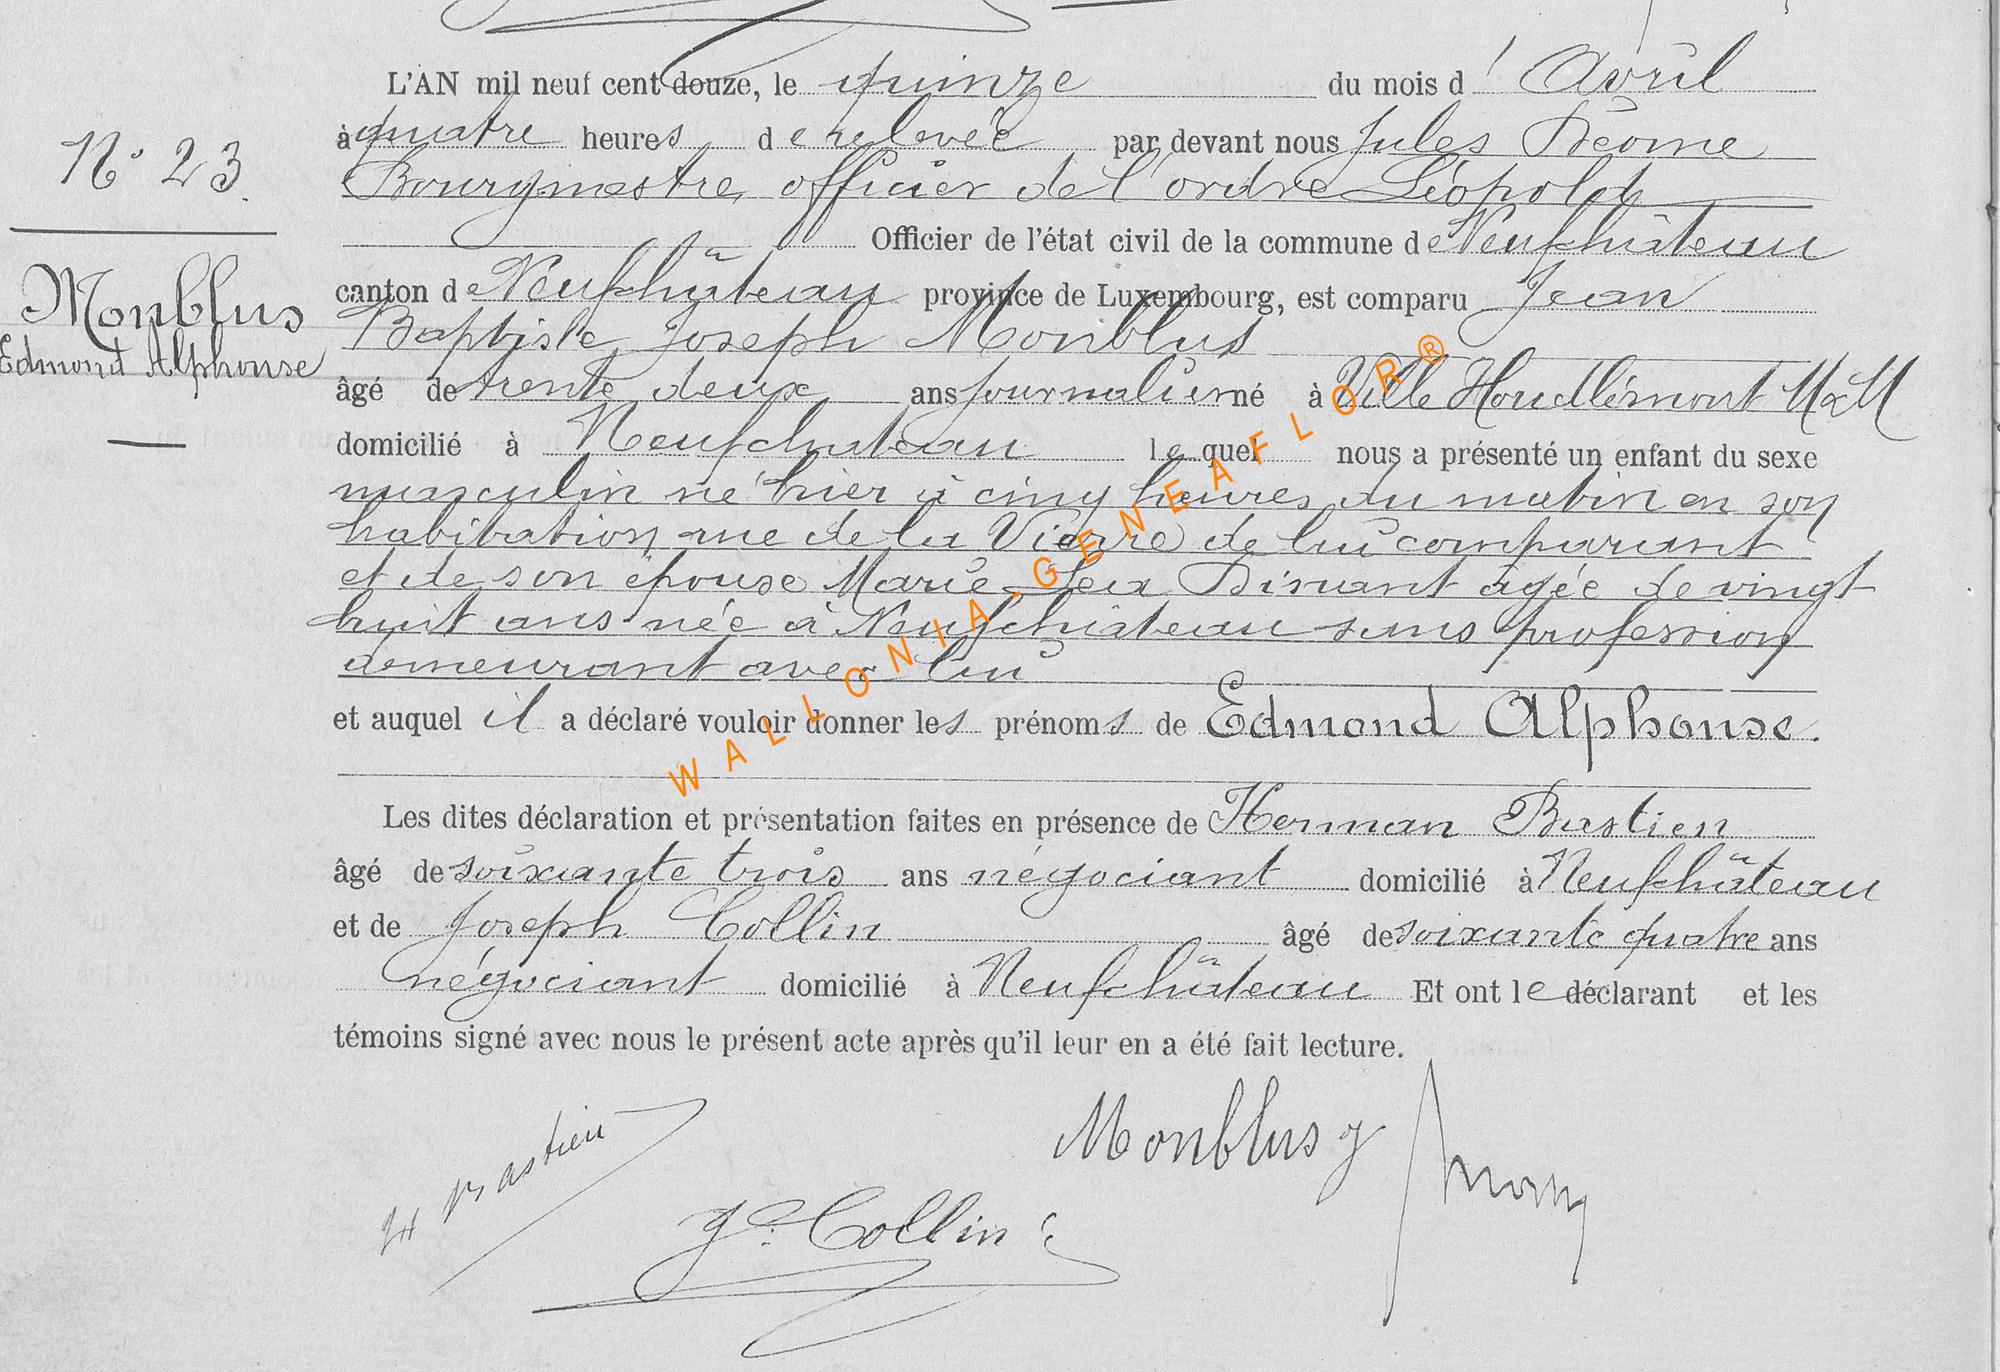 L'AN mil neuf cent douze, le quinze du mois d'Avril
N° 23.
à quatre heures de relevée par devant nous Jules Déome
Bourgmestre, officier de l'ordre Léopold,
Officier de l'état civil de la commune de Neufchâteau
Monblus
Edmond Alphonse
canton de Neufchâteau province de Luxembourg, est comparu Jean
Baptiste Joseph Monblus
âgé de trente deux ans journalier né à Ville Houdlémont M&M
domicilié à Neufchateau lequel nous a présenté un enfant du sexe
masculin né hier à cinq heures du matin en son
habitation rue de la Vierre de lui comparant
et de son épouse Marie Léa Dinant agée de vingt
huit ans née à Neufchâteau sans profession
demeurant avec lui
et auquel il a déclaré vouloir donner les prénoms de Edmond Alphonse.
Les dites déclaration et présentation faites en présence de Herman Bastien
âgé de soixante trois ans négociant domicilié à Neufchâteau
et de Joseph Collin âgé de soixante quatre ans
négociant domicilié à Neufchâteau Et ont le déclarant et les
témoins signé avec nous le présent acte après qu'il leur en a été fait lecture.
H Bastien
Monblus J
Js. Collin
WALLONIA-GENEAFLOR®